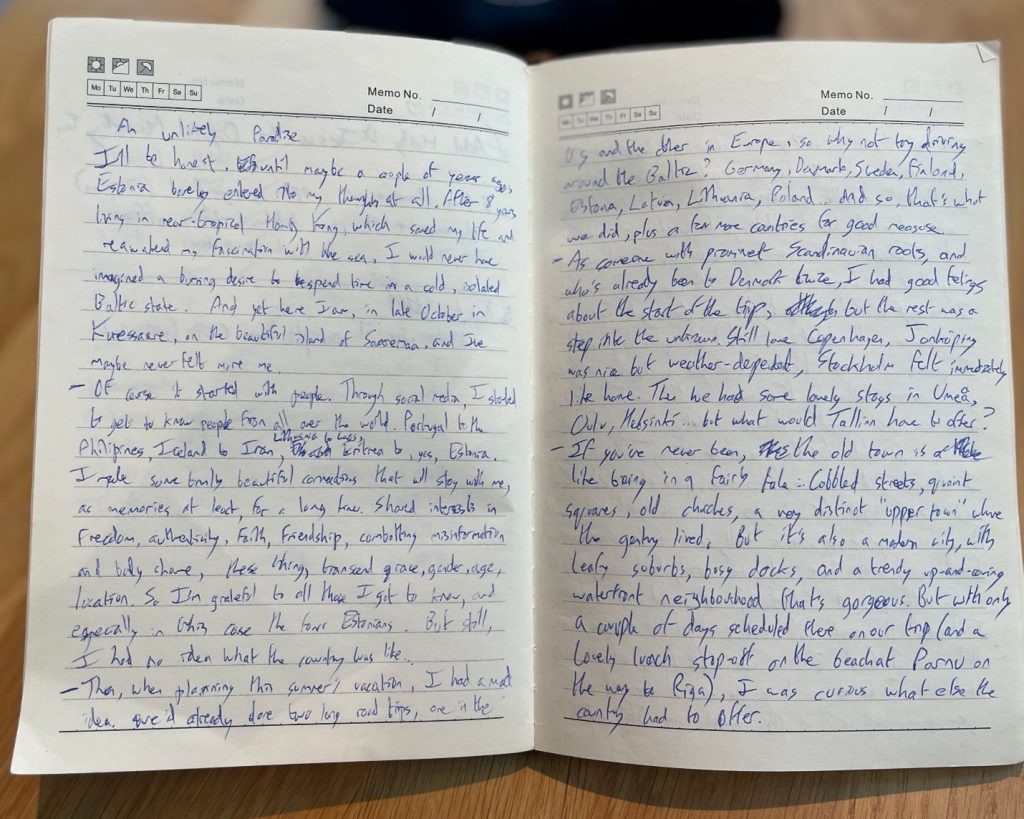 Mo Tu We Th Fr Sa Su
Memo No.
Date / /
An unlikely Paradise
I'll be honest, until maybe a couple of years ago,
Estonia barely entered into my thoughts at all. After 8 years
living in near-tropical Hong Kong, which saved my life and
reawakened my fascination with the sea, I would never have
imagined a burning desire to spend time in a cold, isolated
Baltic state. And yet here I am, in late October in
Kuressaare, on the beautiful island of Saaremaa, and I've
maybe never felt more me.
– Of course it started with people. Through social media, I started
to get to know people from all over the world. Portugal to the
Lithuania to
Philippines, Iceland to Iran, Eritrea to, yes, Estonia.
I made some truly beautiful connections that will stay with me,
as memories at least, for a long time. Shared interests in
Freedom, authenticity, Faith, friendship, combatting misinformation
and body shame, these things transcend race, gender, age,
location. So I'm grateful to all those I got to know, and
especially in this case the four Estonians. But still,
I had no idea what the country was like...
– Then, when planning this summer's vacation, I had a mad
idea. We'd already done two long road trips, one in the
Mo Tu We Th Fr Sa Su
Memo No.
Date / /
US and the other in Europe, so why not try driving
around the Baltic? Germany, Denmark, Sweden, Finland,
Estonia, Latvia, Lithuania, Poland... And so, that's what
we did, plus a few more countries for good measure.
– As someone with prominent Scandinavian roots, and
who's already been to Denmark twice, I had good feelings
about the start of the trip, but the rest was a
step into the unknown. Still love Copenhagen, Jonköping
was nice but weather-dependent, Stockholm felt immediately
like home. Then we had some lovely stays in Umeå,
Oulu, Helsinki... but what would Tallinn have to offer?
– If you've never been, the old town is
like being in a fairy tale: Cobbled streets, quaint
squares, old churches, a very distinct "upper town" where
the gentry lived. But it's also a modern city, with
leafy suburbs, busy docks, and a trendy up-and-coming
waterfront neighbourhood that's gorgeous. But with only
a couple of days scheduled there on our trip (and a
lovely lunch stop-off on the beach at Parnu on
the way to Riga), I was curious what else the
country had to offer.